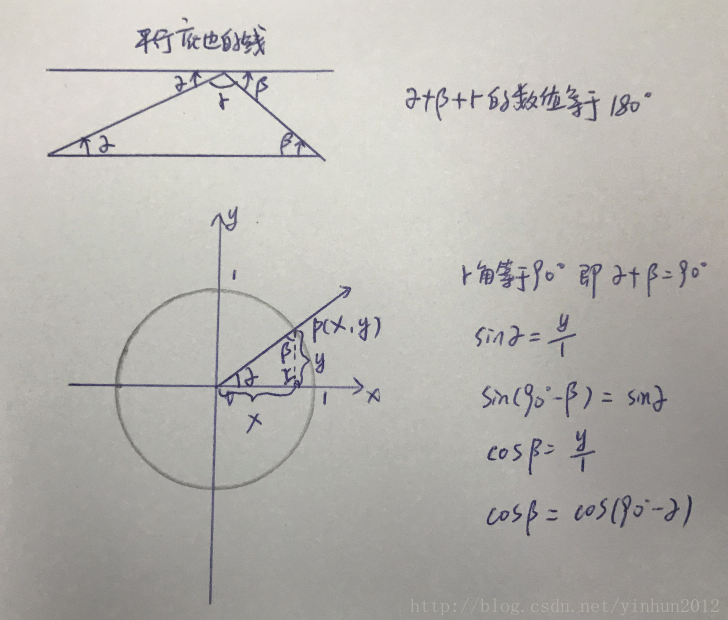 平行底边的线
α β
γ
α β
α+β+γ的数值等于180°
y
1
P(x,y)
β
y
α γ
x
1
x
γ角等于90° 即 α+β=90°
sinα = y/1
sin(90°-β) = sinα
cosβ = y/1
cosβ = cos(90°-α)
http://blog.csdn.net/yinhun2012